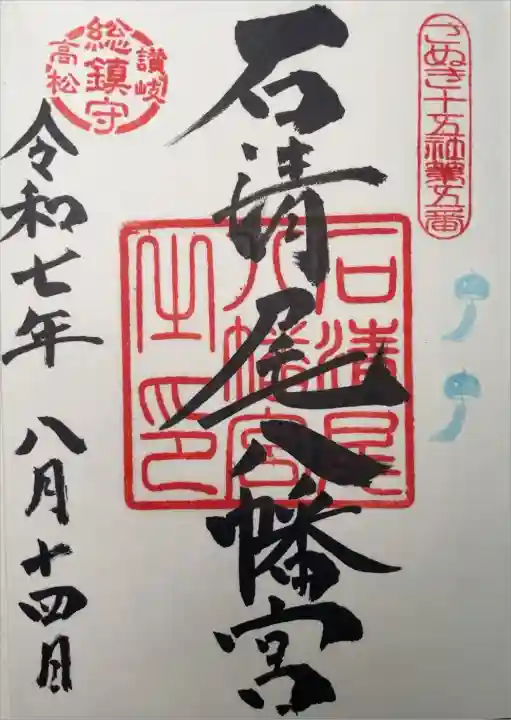 さぬき十五社第五番
石清尾八幡宮
石清尾
八幡宮
之印
讃岐
総鎮守
高松
令和七年 八月十四日